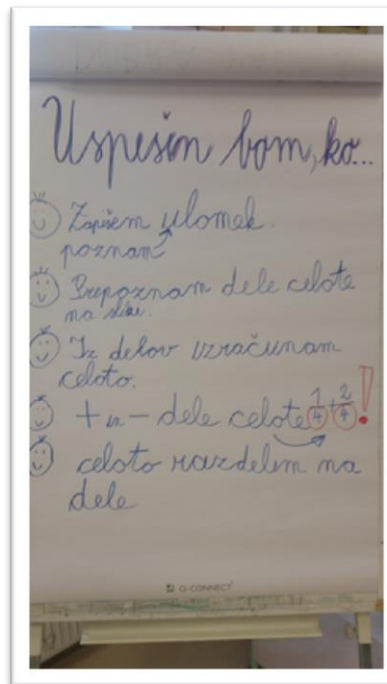 Uspešen bom, ko...
Zapišem ulomek.
poznam
Prepoznam dele celote
na sliki.
Iz delov izračunam
celoto.
+ in - dele celote 1/4 + 2/4 !
celoto razdelim na
dele
Q-CONNECT